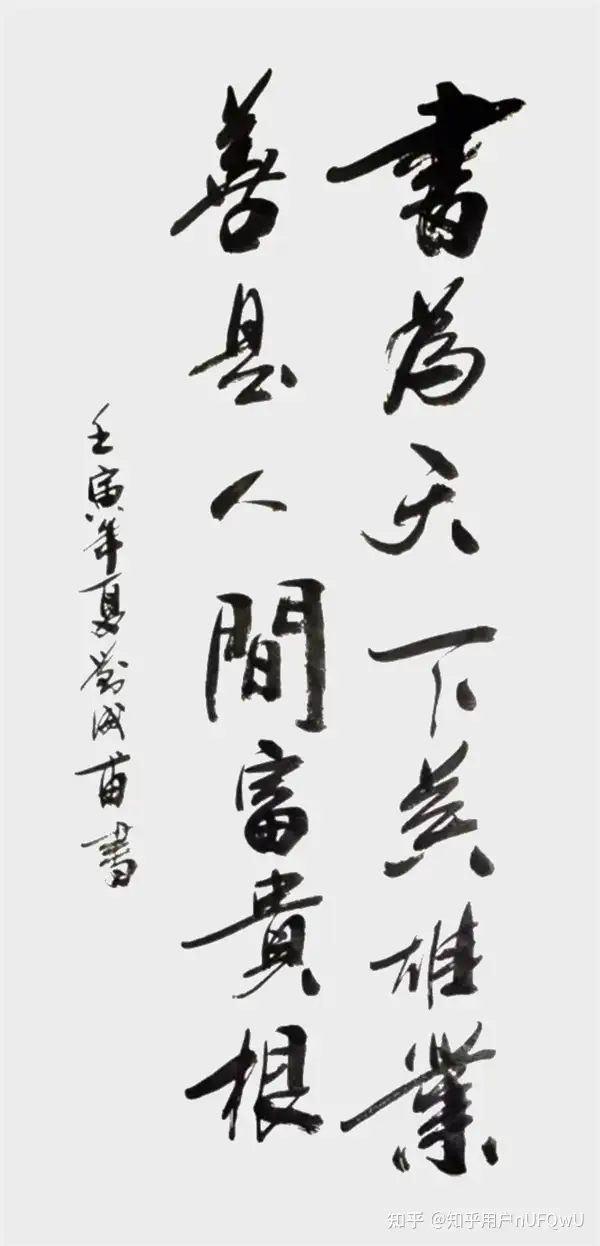 書為天下英雄業
善是人間富貴根
壬寅年夏劉成苗書
知乎 @知乎用户nUFQwU